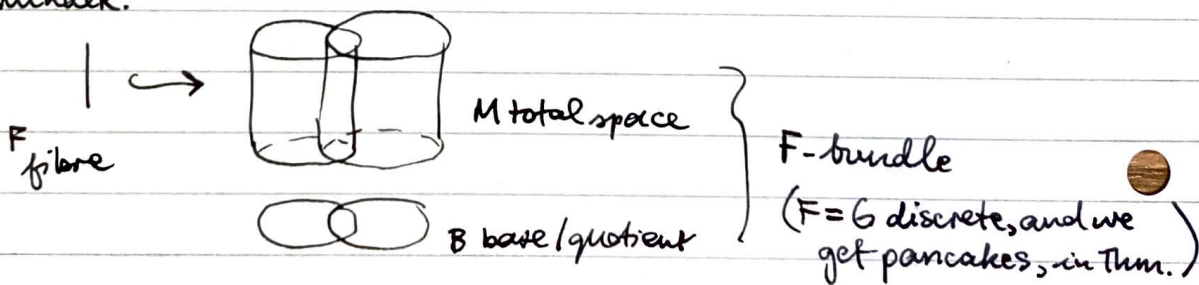 F
fibre
M total space
B base/quotient
F-bundle
(F=G discrete, and we
get pancakes, in Thm.)